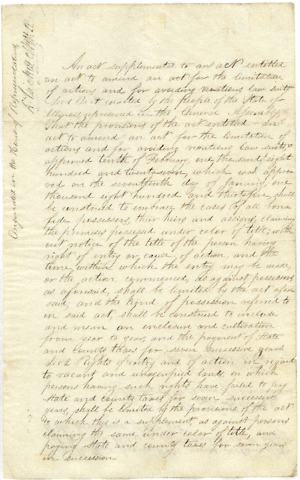 An act supplemental to an act entitled
an act to amend an act for the limitation
of actions and for avoiding vexatious law suits
Sec 1 Be it enacted by the people of the State of
Illinois represented in the General Assembly
That the provisions of the act entitled an
act to amend an act for the limitation of
actions and for avoiding vexatious law suits
approved tenth of February one thousand eight
hundred and twenty seven, which was appro
ved on the seventeenth day of January one
thousand eight hundred and thirty five shall
be construed to embrace the cases of all bona
fide possessors their heirs and assigns claiming
the premises possessed under color of title, with
out notice of the title of the person having
right of entry or cause of action, and the
time within which the entry may be made
or the action commenced, as against possessors
as aforesaid, shall be limited to the act afore
said, and the kind of possession referred to
in said act, shall be construed to include
and mean an inclosure and cultivation
from year to year, and the payment of State
and County taxes for seven successive years
Sec 2 Rights of entry and of action in regard
to vacant and unoccupied lands on which
persons having such rights have failed to pay
State and county taxes for seven successive
years, shall be limited by the provisions of the act
to which this is a supplement as against persons
claiming the same under color of title, and
paying State and county taxes for seven years
in succession